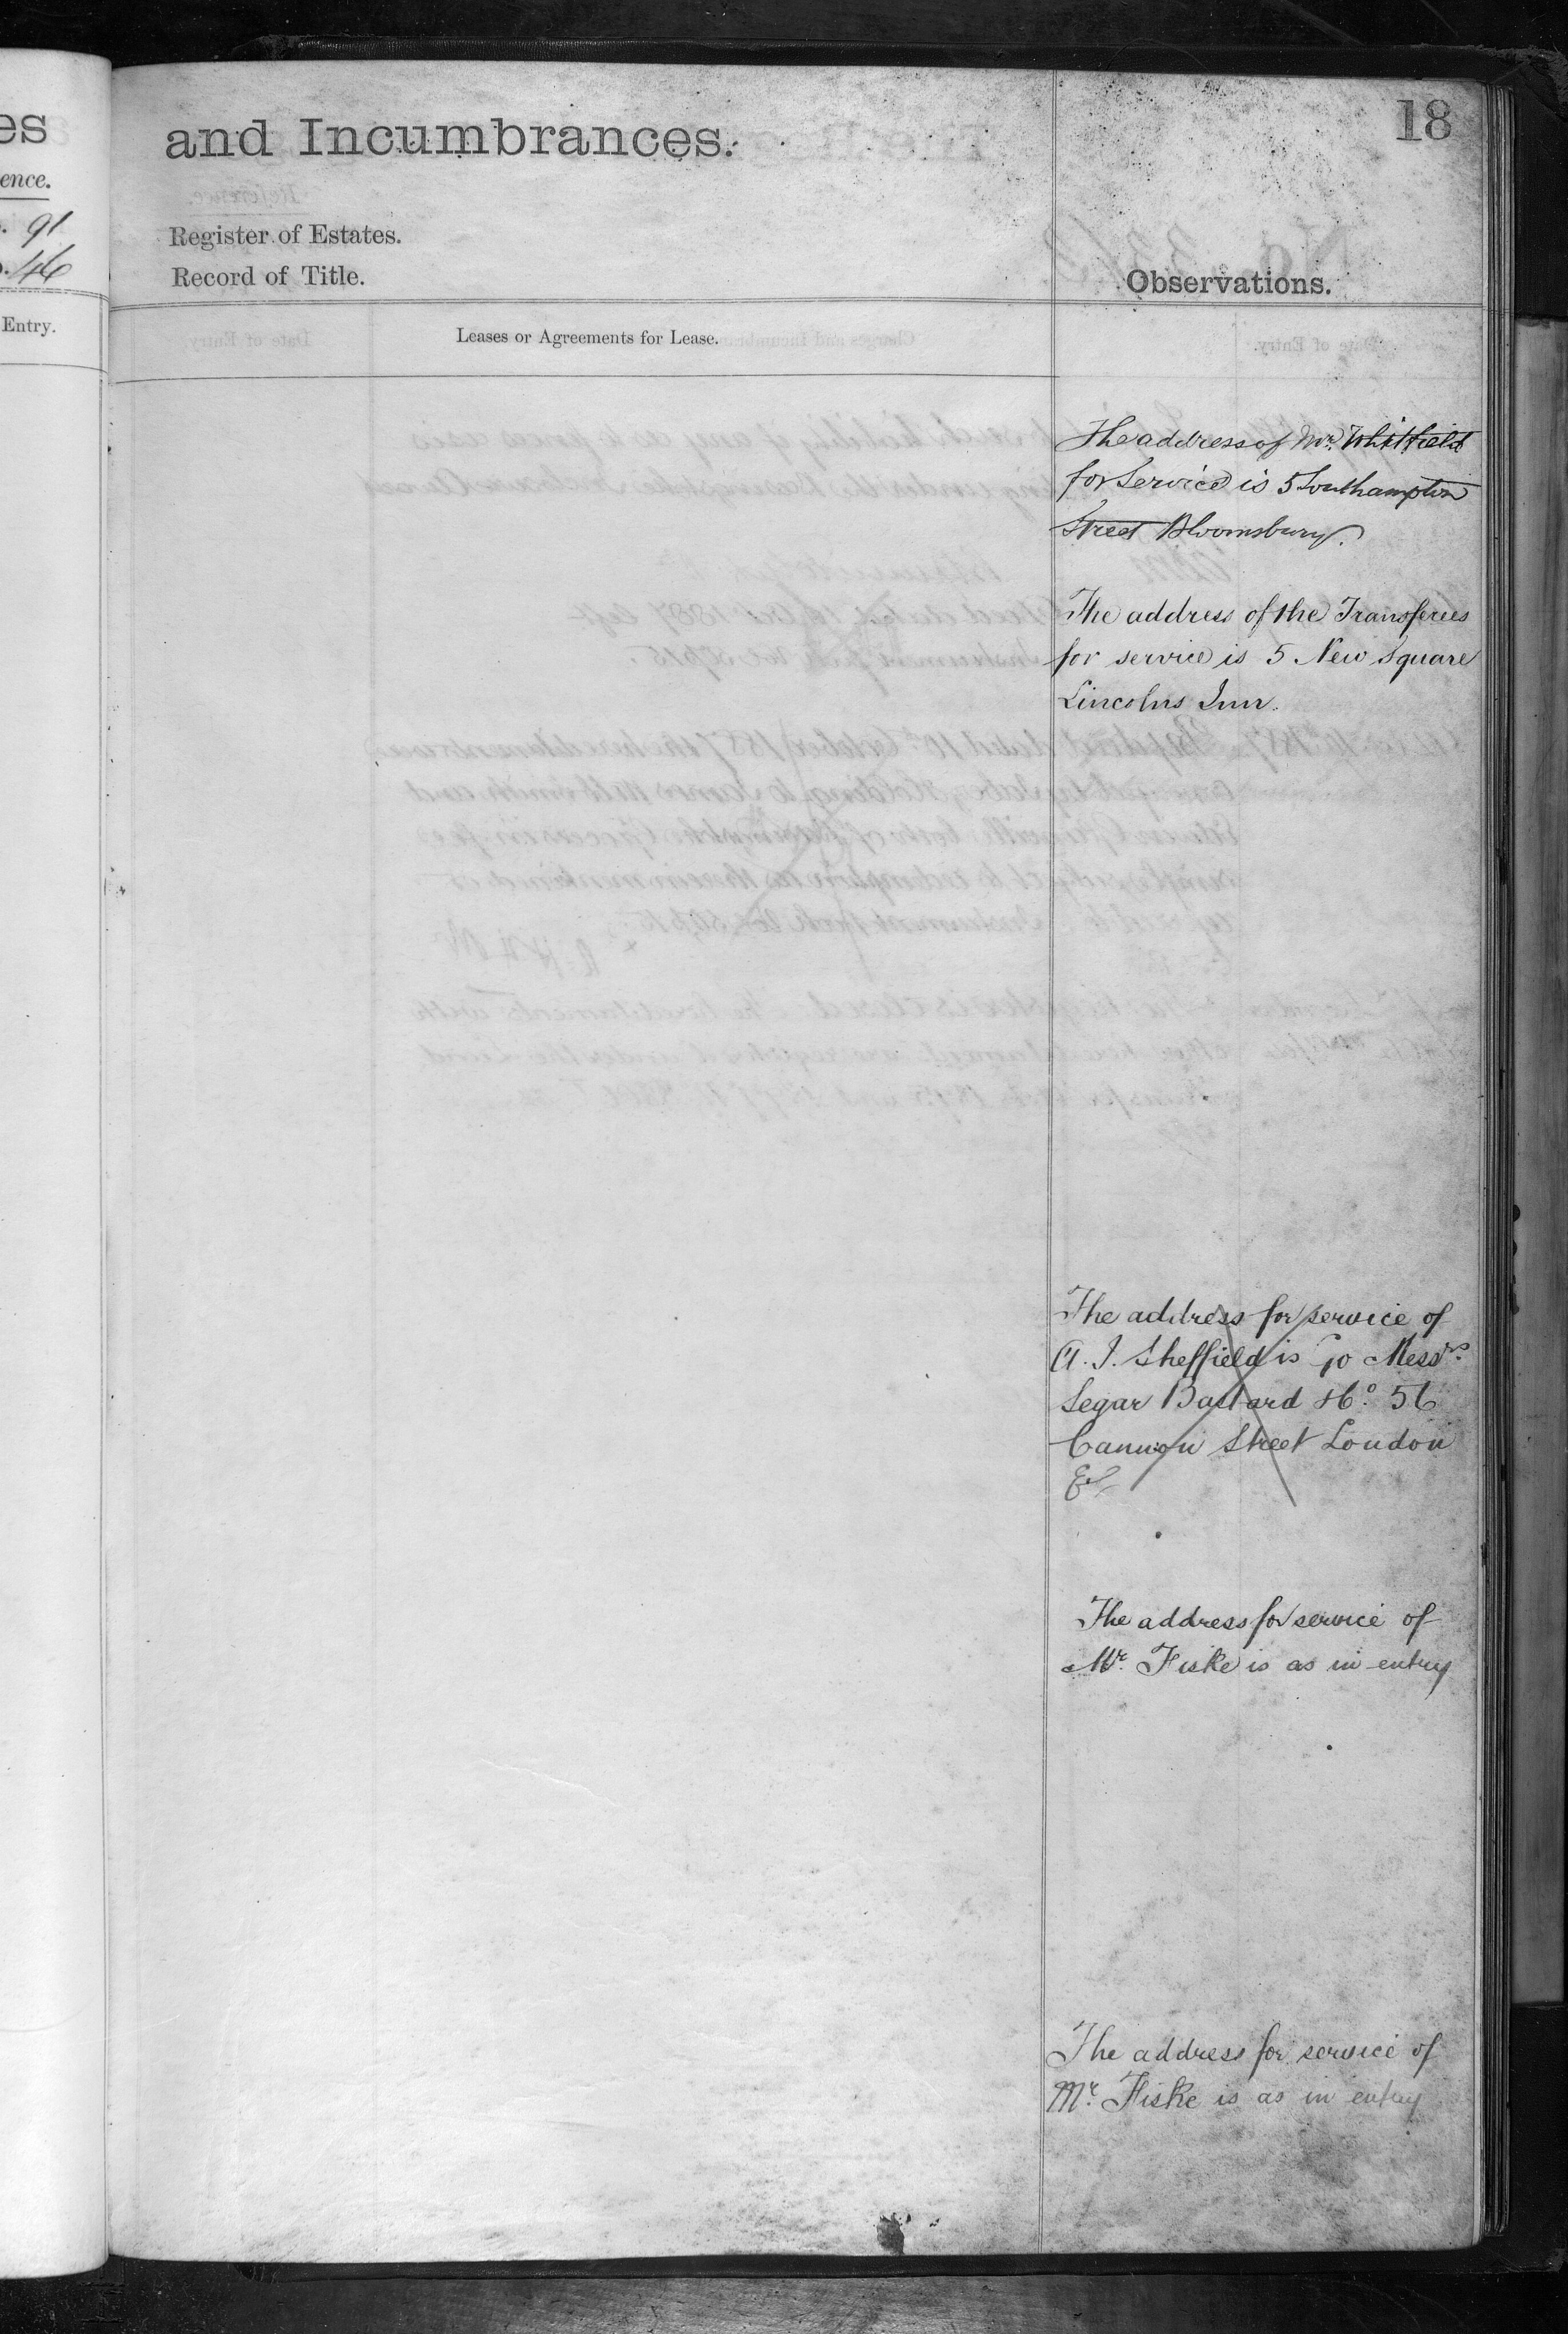 es
ence.
91
46
Entry.
and Incumbrances.
18
Register of Estates.
Record of Title.
Observations.
Leases or Agreements for Lease.
The address of Mr. Whitfield
for Service is 5 Southampton
Street Bloomsbury.
The address of the Transferees
for service is 5 New Square
Lincolns Inn.
The address for service of
A. J. Sheffield is c/o Messrs.
Segar Bastard & Co. 56
Cannon Street London
EC
The address for service of
Mr. Fiske is as in entry
The address for service of
Mr. Fiske is as in entry